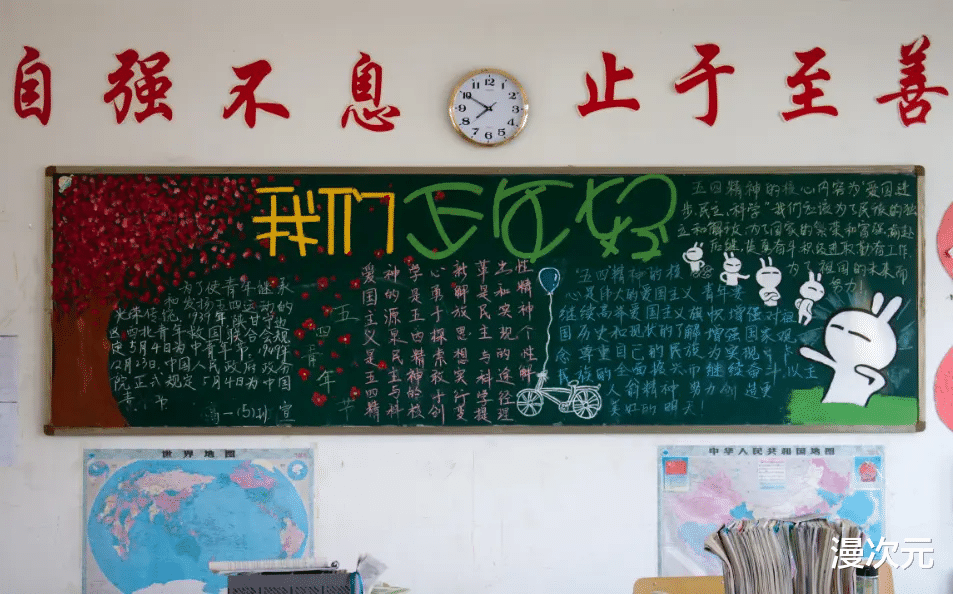 自强不息 止于至善
我们正正好
为了使青年继承
光荣传统
和发扬五四运动的
1939年陕甘宁边
区西北青年救国联合会规
定5月4日为中青年节。1949年
12月23日,中国人民政府政务
院正式规定5月4日为中国
青年节
高一(5)班 宣
五四青年节
爱国主义是五四精
神的源泉民主与科
学是五四精神的核
心勇于探索敢于创
新解放思想实行变
革是民主与科学提
出和实现的途径理
性精神个性解
五四精神的核心内容为"爱国进
步、民主、科学"我们应该为了民族的独
立和解放,为了国家的繁荣和富强前赴
后继,认真奋斗积极进取勤奋工作
为了祖国的未来而
努力!
"五四精神的核
心是伟人的爱国主义青年要
继续高举爱国主义旗帜增强对祖
国历史和现状的了解增强国家观
念尊重自己的民族为实现
民族的全面振兴而继续奋斗以主
人翁精神努力创造更
美好的明天!
世界地图
中华人民共和国地图
漫次元